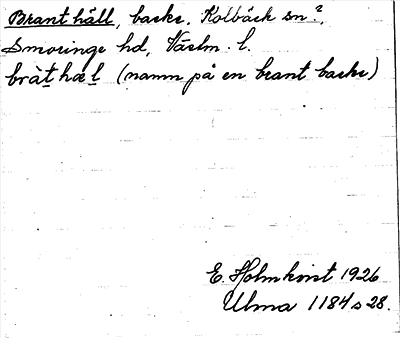 Branthäll, backe. Kolbäck sn?,
Snevringe hd, Västm. l.
bràt̠hæl̠ (namn på en brant backe)
E. Holmkvist 1926
Ulma 1184 s 28.